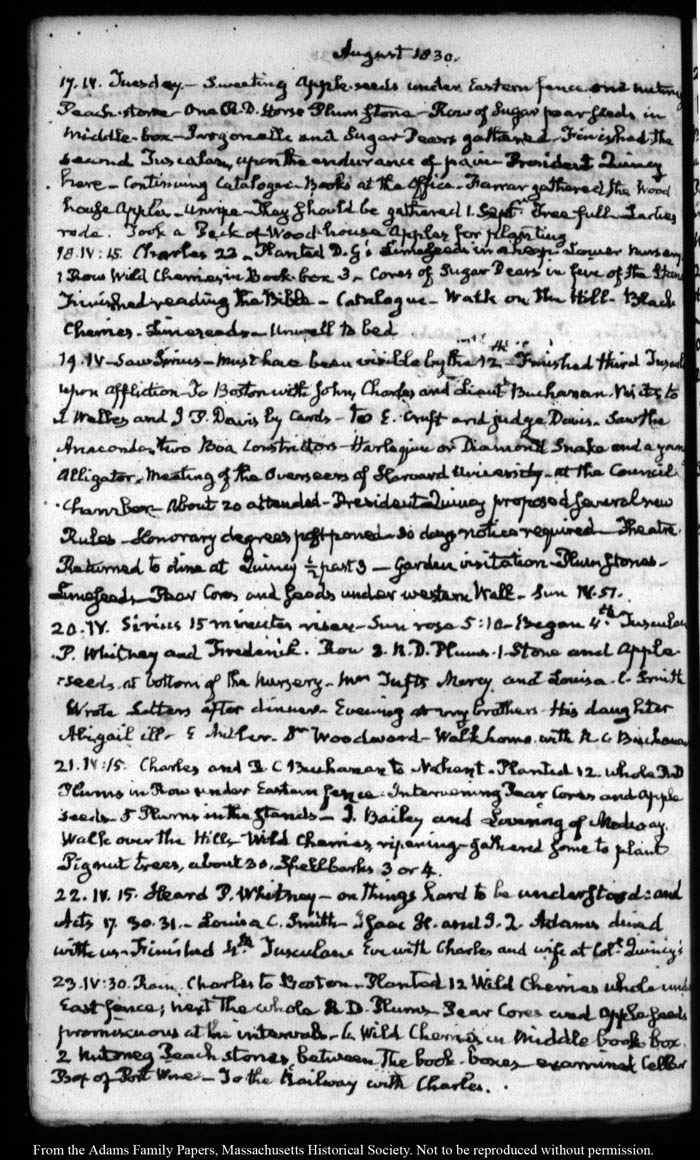 August 1830.
17. IV. Tuesday – Sweeting Apple-seeds under Eastern fence and nutmeg
Peach-stone – One R.D. Horse Plum Stone – Row of Sugar pear seeds in
middle-box – Jargonelle and Sugar Pears gathered – Finished the
second Tusculan, upon the endurance of pain – President Quincy
here – Continuing Catalogue – Books at the Office. Farrar gathered the Wood
house Apples – Unripe – They should be gathered 1. Sept. Tree full – Ladies
rode. Took a Peck of Wood-house Apples for planting
18. IV: 15. Charles 23 – Planted D. G's Limeseeds in a heap Lower Nursery
1 Row Wild Cherries in Book-box 3 – Cores of Sugar Pears in five of the Stan
Finished reading the Bible – Catalogue – Walk on the Hill – Black
Cherries – Limeseeds – Unwell to bed
19. IV – Saw Sirius – Must have been visible by the 12th – Finished third Tuscul
upon affliction – To Boston with John, Charles and Lieut. Buchanan. Visits to
and J P. Davis by Cards – to E. Cruft and judge Davis – Saw the
Anaconda, two Boa Constrictors – Harlequin or Diamond Snake and a
Alligator. Meeting of the Overseers of Harvard University – at the Council
Chamber – About 20 attended – President Quincy proposed several new
Rules – Honorary degrees postponed – 30 days notice required – Theatre.
Returned to dine at Quincy ½ past 3 – Garden visitation – Plum Stones –
Limeseeds – Pear Cores and seeds under western Wall – Sun IV. 57.
20. IV. Sirius 15 minutes risen – Sun rose 5:10 – Began 4th Tusculan
P. Whitney and Frederick. Row 2. R.D. Plums. 1. Stone and Apple
seeds at bottom of the nursery – Mrs Tufts Mercy and Louisa C. Smith
Wrote Letters after dinner – Evening at my brothers – His daughter
Abigail ill – E Miller. Dr Woodward – Walk home with R C Buchanan
21. IV: 15. Charles and R C Buchanan to Nahant – Planted 12 whole R D
Plums in Row under Eastern fence. Intervening Pear Cores and Apple
seeds – 5 Plums in the Stands – J. Bailey and Lovering of Medway.
Walk over the Hills – Wild Cherries, ripening – gathered some to plant
Pignut trees, about 20, Shellbarks 3 or 4.
22. IV. 15. Heard P. Whitney – on things hard to be understood: and
Acts 17. 30. 31. – Louisa C. Smith – Isaac H. and J. Q. Adams dined
with us – Finished 4th Tusculan Eve with Charles and wife at Col. Quincy's
23. IV: 30. Rain. Charles to Boston – Planted 12 Wild Cherries whole under
East fence; next the whole R.D. Plums – Pear Cores and Apple seeds
promiscuous at the intervals – 6 Wild Cherries in middle book box.
2 Nutmeg Peach stones, between the book-boxes – examined Cellar
Box of Port Wine – To the Railway with Charles.
From the Adams Family Papers, Massachusetts Historical Society. Not to be reproduced without permission.